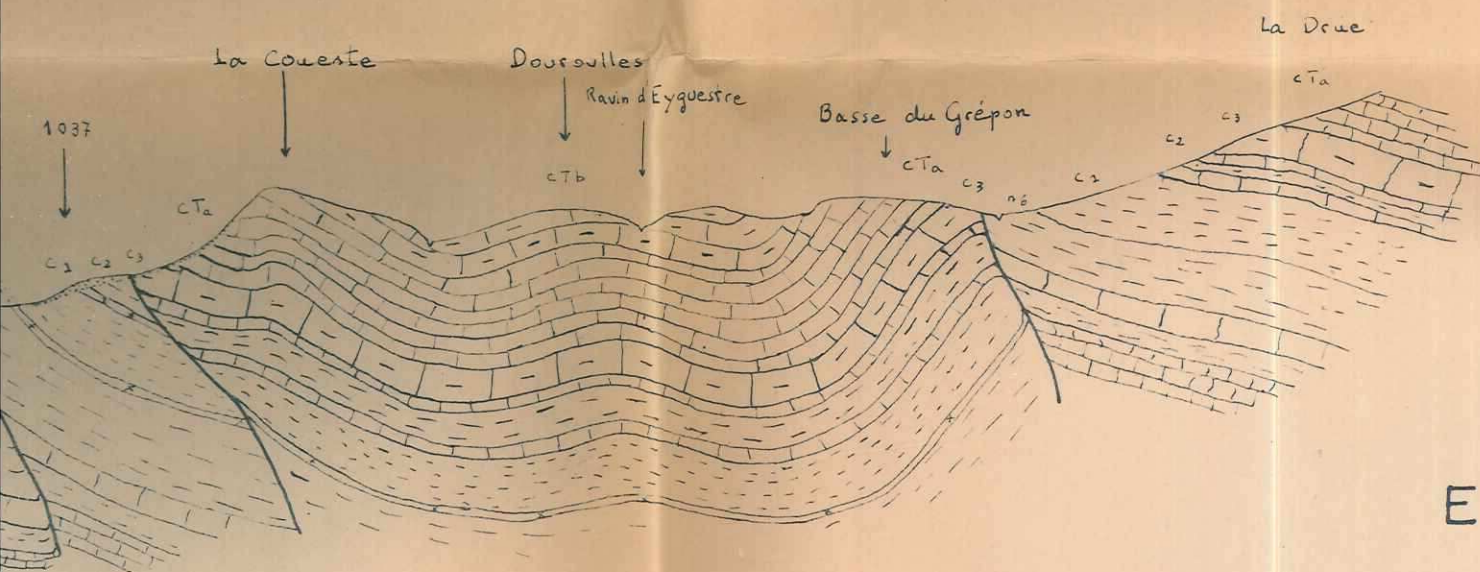 La Drue
La Coueste
Douroulles
cTa
Ravin d'Eyguestre
Basse du Grépon
1037
c3
c2
cTb
cTa
c3
c1
n6
cTa
c1 c2 c3
E